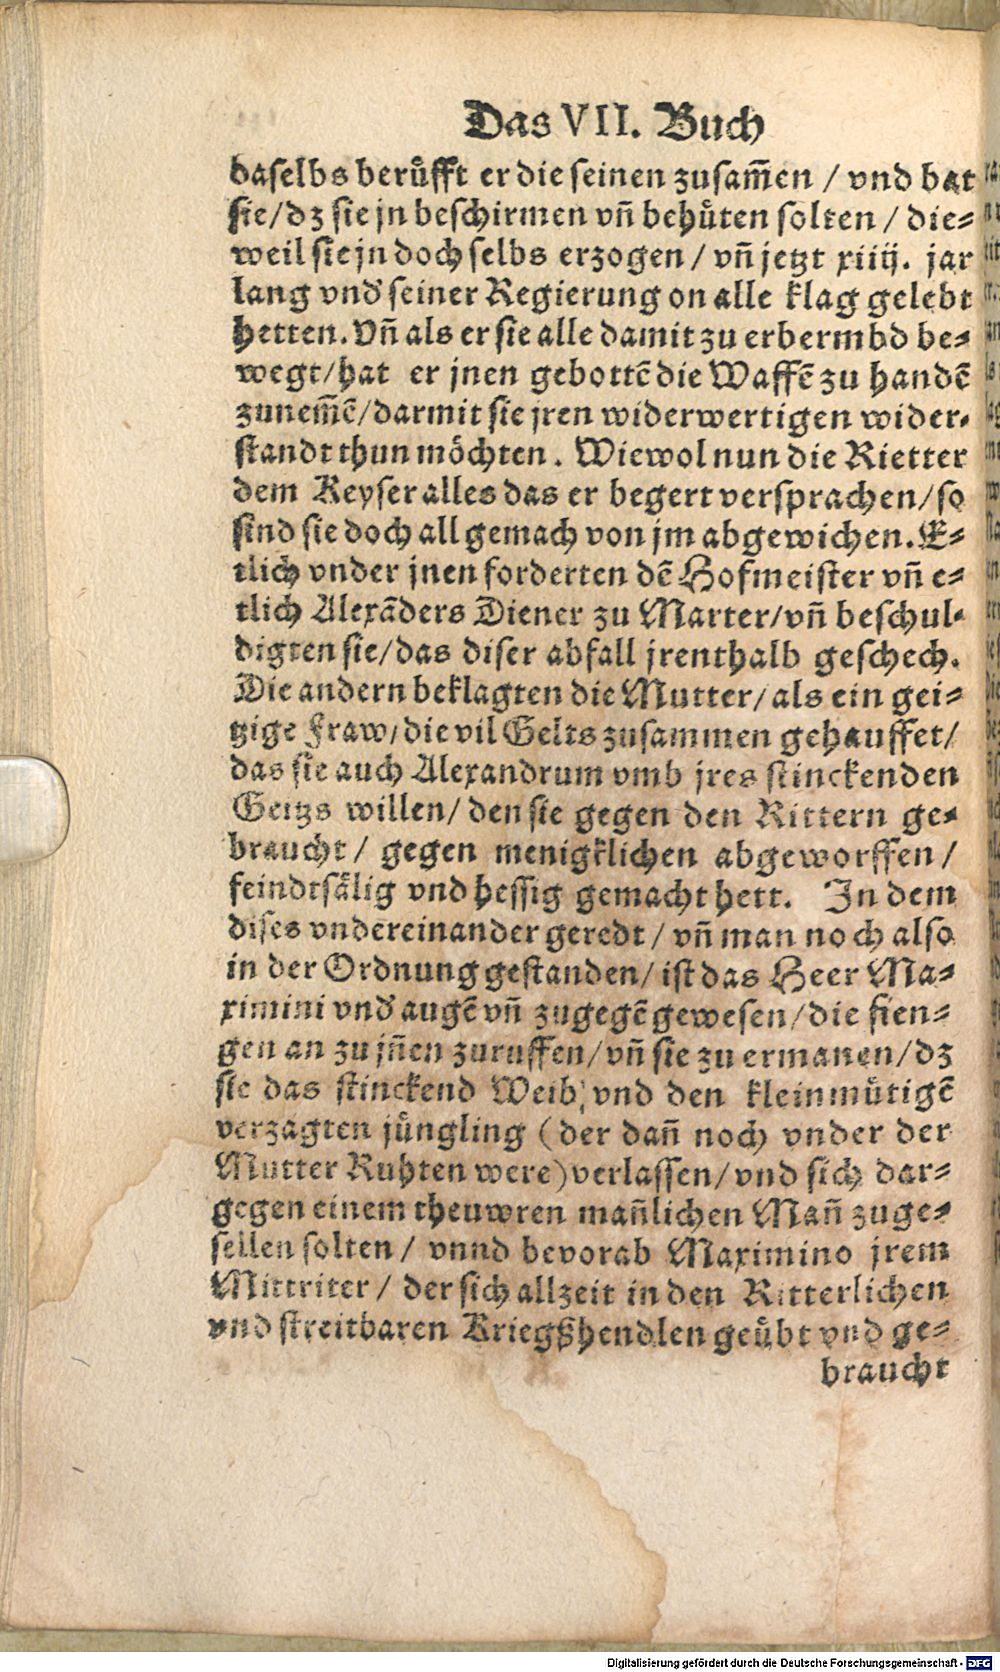 Das VII. Buch
daselbs beruͤfft er die seinen zusam̄en / vnd bat
sie / dz sie jn beschirmen vñ behuͤten solten / die⸗
weil sie jn doch selbs erzogen / vñ jetzt xiiij. jar
lang vnd̕ seiner Regierung on alle klag gelebt
hetten. Vñ als er sie alle damit zu erbermbd be⸗
wegt / hat er jnen gebottē die Waffē zu handē
zunem̄ē / darmit sie jren widerwertigen wider⸗
standt thun moͤchten. Wiewol nun die Rietter
dem Keyser alles das er begert versprachen / so
sind sie doch all gemach von jm abgewichen. E⸗
tlich vnder jnen forderten dē Hofmeister vñ e⸗
tlich Alexāders Diener zu Marter / vñ beschul⸗
digten sie / das diser abfall jrenthalb geschech.
Die andern beklagten die Mutter / als ein gei⸗
tzige Fraw / die vil Gelts zusammen gehauffet /
das sie auch Alexandrum vmb jres stinckenden
Geitzs willen / den sie gegen den Rittern ge⸗
braucht / gegen menigklichen abgeworffen /
feindtsaͤlig vnd hessig gemacht hett. In dem
dises vndereinander geredt / vñ man noch also
in der Ordnung gestanden / ist das Heer Ma⸗
ximini vnd̕ augē vñ zugegē gewesen / die fien⸗
gen an zu jñen zuruffen / vñ sie zu ermanen / dz
sie das stinckend Weib / vnd den kleinmuͤtigē
verzagten juͤngling (der dañ noch vnder der
Mutter Ruhten were) verlassen / vnd sich dar⸗
gegen einem theuwren mañlichen Mañ zuge⸗
sellen solten / vnnd bevorab Maximino jrem
Mittriter / der sich allzeit in den Ritterlichen
vnd streitbaren Kriegßhendlen geuͤbt vnd ge⸗
braucht
Digitalisierung gefördert durch die Deutsche Forschungsgemeinschaft - DFG